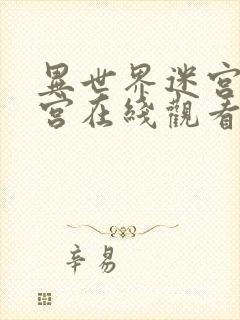 異世界迷宮
宮在綫觀看
辛易